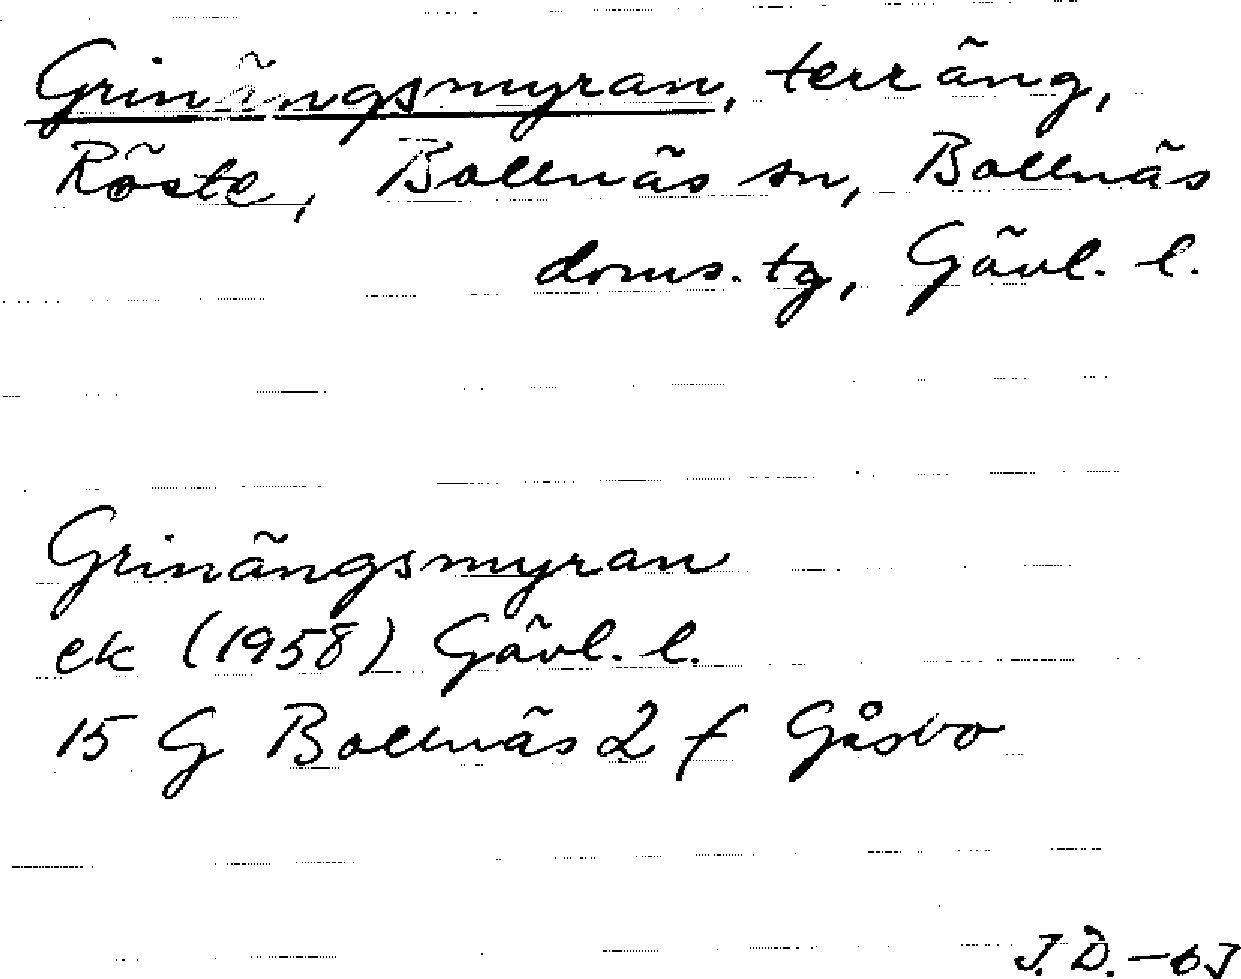 Grinängsmyran, terräng,
Röste, Bollnäs sn, Bollnäs
doms. tg, Gävl. l.
Grinängsmyran
ek (1958) Gävl. l.
15 G Bollnäs 2 f Gåsbo
J. D.